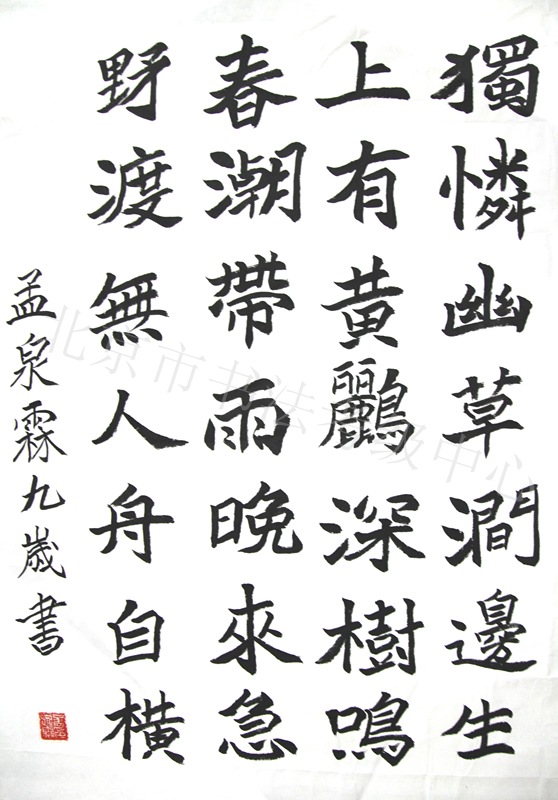 獨憐幽草澗邊生
上有黃鸝深樹鳴
春潮帶雨晚來急
野渡無人舟自橫
孟泉霖九歲書
北京市书法考级中心